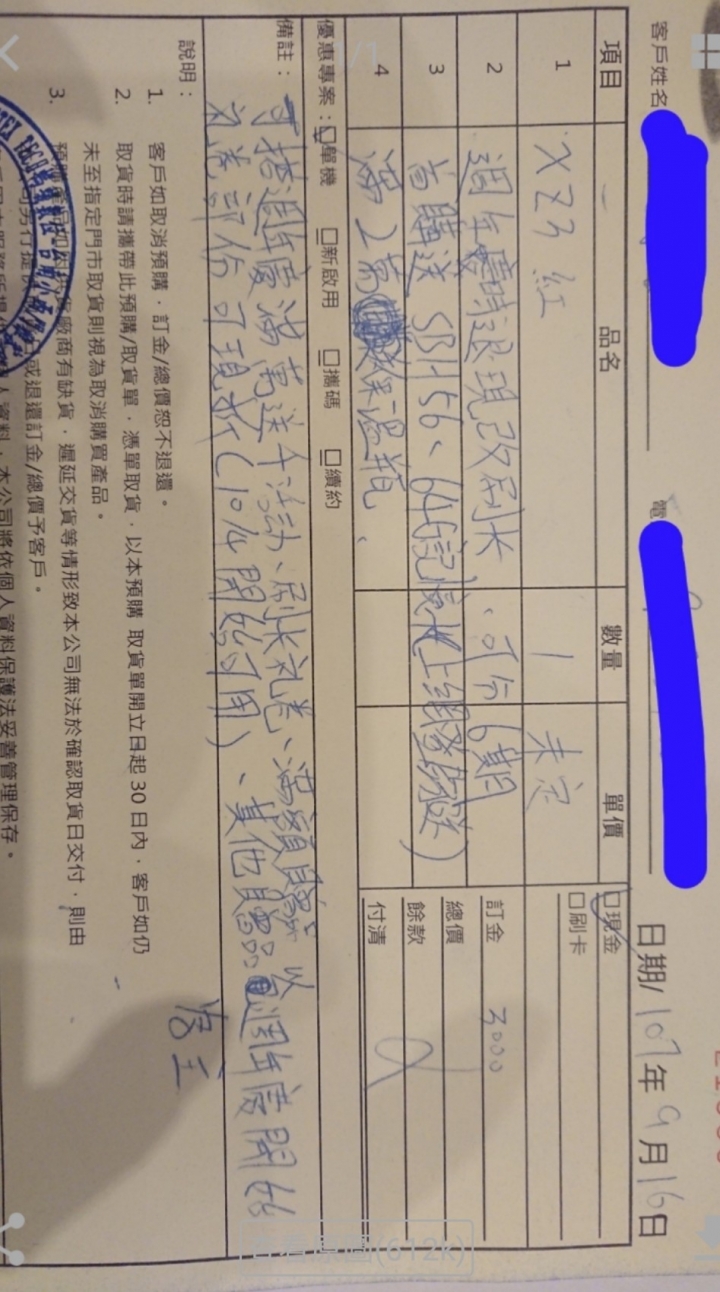 客戶姓名
電
日期/107年9月16日
項目 品名 數量 單價
□現金
□刷卡
1 XZ3 紅 1 未定
2 週年慶時退現改刷卡、可分6期
訂金 3000
總價
3 首購送 SBH56、64G記憶卡
餘款
4 滿2萬 保溫瓶
付清
優惠專案：□單機 □新啟用 □攜碼 □續約
備註：可搭週年慶滿萬送千活動、刷卡禮卷、滿額贈
部份可現折(10/4開始可用)、其他贈品以週年慶開始
為主
說明：
1. 客戶如取消預購，訂金/總價恕不退還。
2. 取貨時請攜帶此預購/取貨單，憑單取貨，以本預購 取貨單開立日起 30 日內，客戶如仍
未至指定門市取貨則視為取消購買產品。
3. 廠商有缺貨，遲延交貨等情形致本公司無法於確認取貨日交付，則由
或退還訂金/總價予客戶。
人資料，本公司將依個人資料保護法妥善管理保存。
1/1
查看原圖(612k)